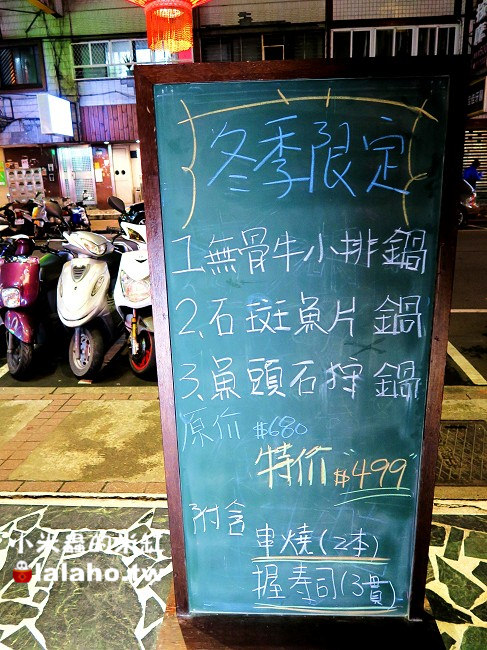 冬季限定
1.無骨牛小排鍋
2.石斑魚片鍋
3.魚頭石狩鍋
原价 $680
特价"$499"
附含
串燒(2本)
握壽司(3貫)
小米蟲的粉紅
lalaho.tw